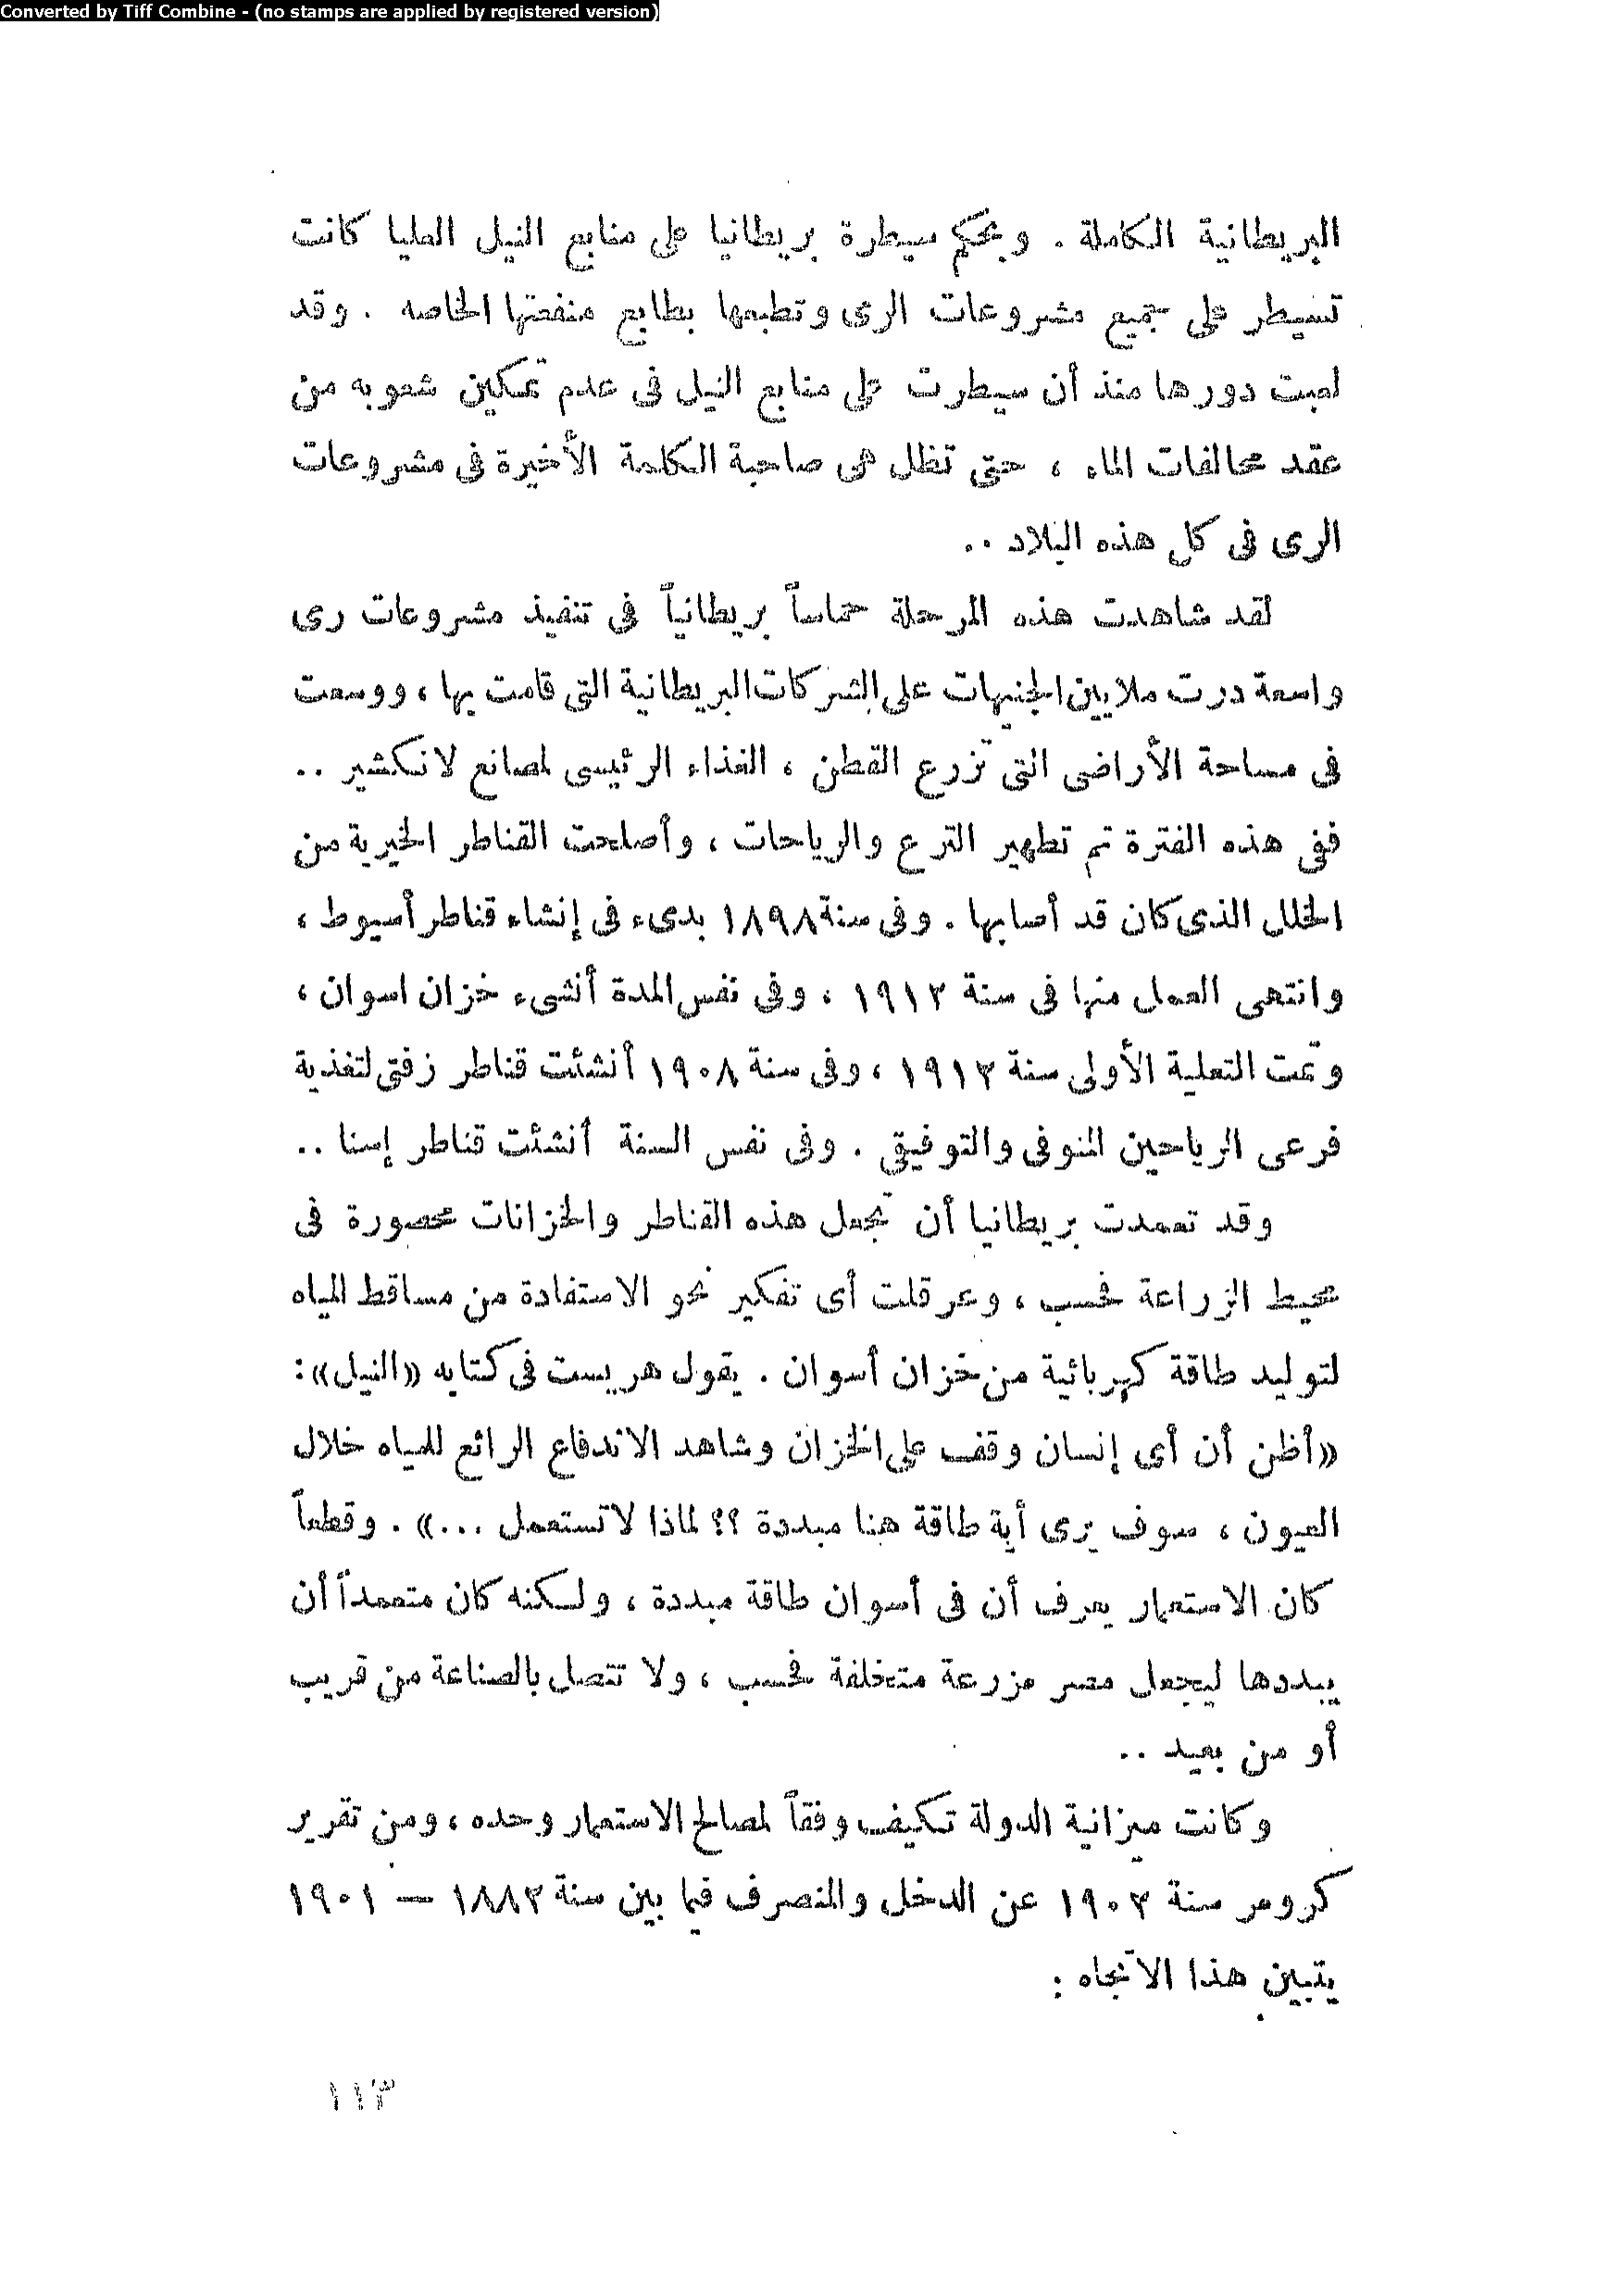 Converted by Tiff Combine - (no stamps are applied by registered version)
البريطانية الكاملة . وبحكم سيطرة بريطانيا على منابع النيل العليا كانت
تسيطر على جميع مشروعات الرى وتطبعها بطابع منفعتها الخاصه . وقد
لعبت دورها منذ أن سيطرت على منابع النيل فى عدم تمكين شعوبه من
عقد محالفات الماء ، حتى تظل هى صاحبة الكلمة الأخيرة فى مشروعات
الرى فى كل هذه البلاد ..
لقد شاهدت هذه المرحلة حماساً بريطانياً فى تنفيذ مشروعات رى
واسعة درت ملايين الجنيهات على الشركات البريطانية التى قامت بها ، ووسعت
فى مساحة الأراضى التى تزرع القطن ، الغذاء الرئيسى لمصانع لانكشير ..
ففى هذه الفترة تم تطهير الترع والرياحات ، وأصلحت القناطر الخيرية من
الخلل الذى كان قد أصابها . وفى سنة ١٨٩٨ بدىء فى إنشاء قناطر أسيوط ،
وانتهى العمل منها فى سنة ١٩١٢ ، وفى نفس المدة أنشىء خزان اسوان ،
وتمت التعلية الأولى سنة ١٩١٢ ، وفى سنة ١٩٠٨ أنشئت قناطر زفتى لتغذية
فرعى الرياحين المنوفى والتوفيقى . وفى نفس السنة أنشئت قناطر إسنا ..
وقد تعمدت بريطانيا أن تجعل هذه القناطر والخزانات محصورة فى
محيط الزراعة فحسب ، وعرقلت أى تفكير نحو الاستفادة من مساقط المياه
لتوليد طاقة كهربائية من خزان أسوان . يقول هريست فى كتابه «النيل»:
«أظن أن أى إنسان وقف على الخزان وشاهد الاندفاع الرائع للمياه خلال
العيون ، سوف يرى أية طاقة هنا مبددة ؟؟ لماذا لا تستعمل ...» . وقطعاً
كان الاستعمار يعرف أن فى أسوان طاقة مبددة ، ولكنه كان متعمداً أن
يبددها ليجعل مصر مزرعة متخلفة فحسب ، ولا تتصل بالصناعة من قريب
أو من بعيد ..
وكانت ميزانية الدولة تكيف وفقاً لمصالح الاستعمار وحده ، ومن تقرير
كرومر سنة ١٩٠٢ عن الدخل والمنصرف فيما بين سنة ١٨٨٢ — ١٩٠١
يتبين هذا الاتجاه :
١١٣